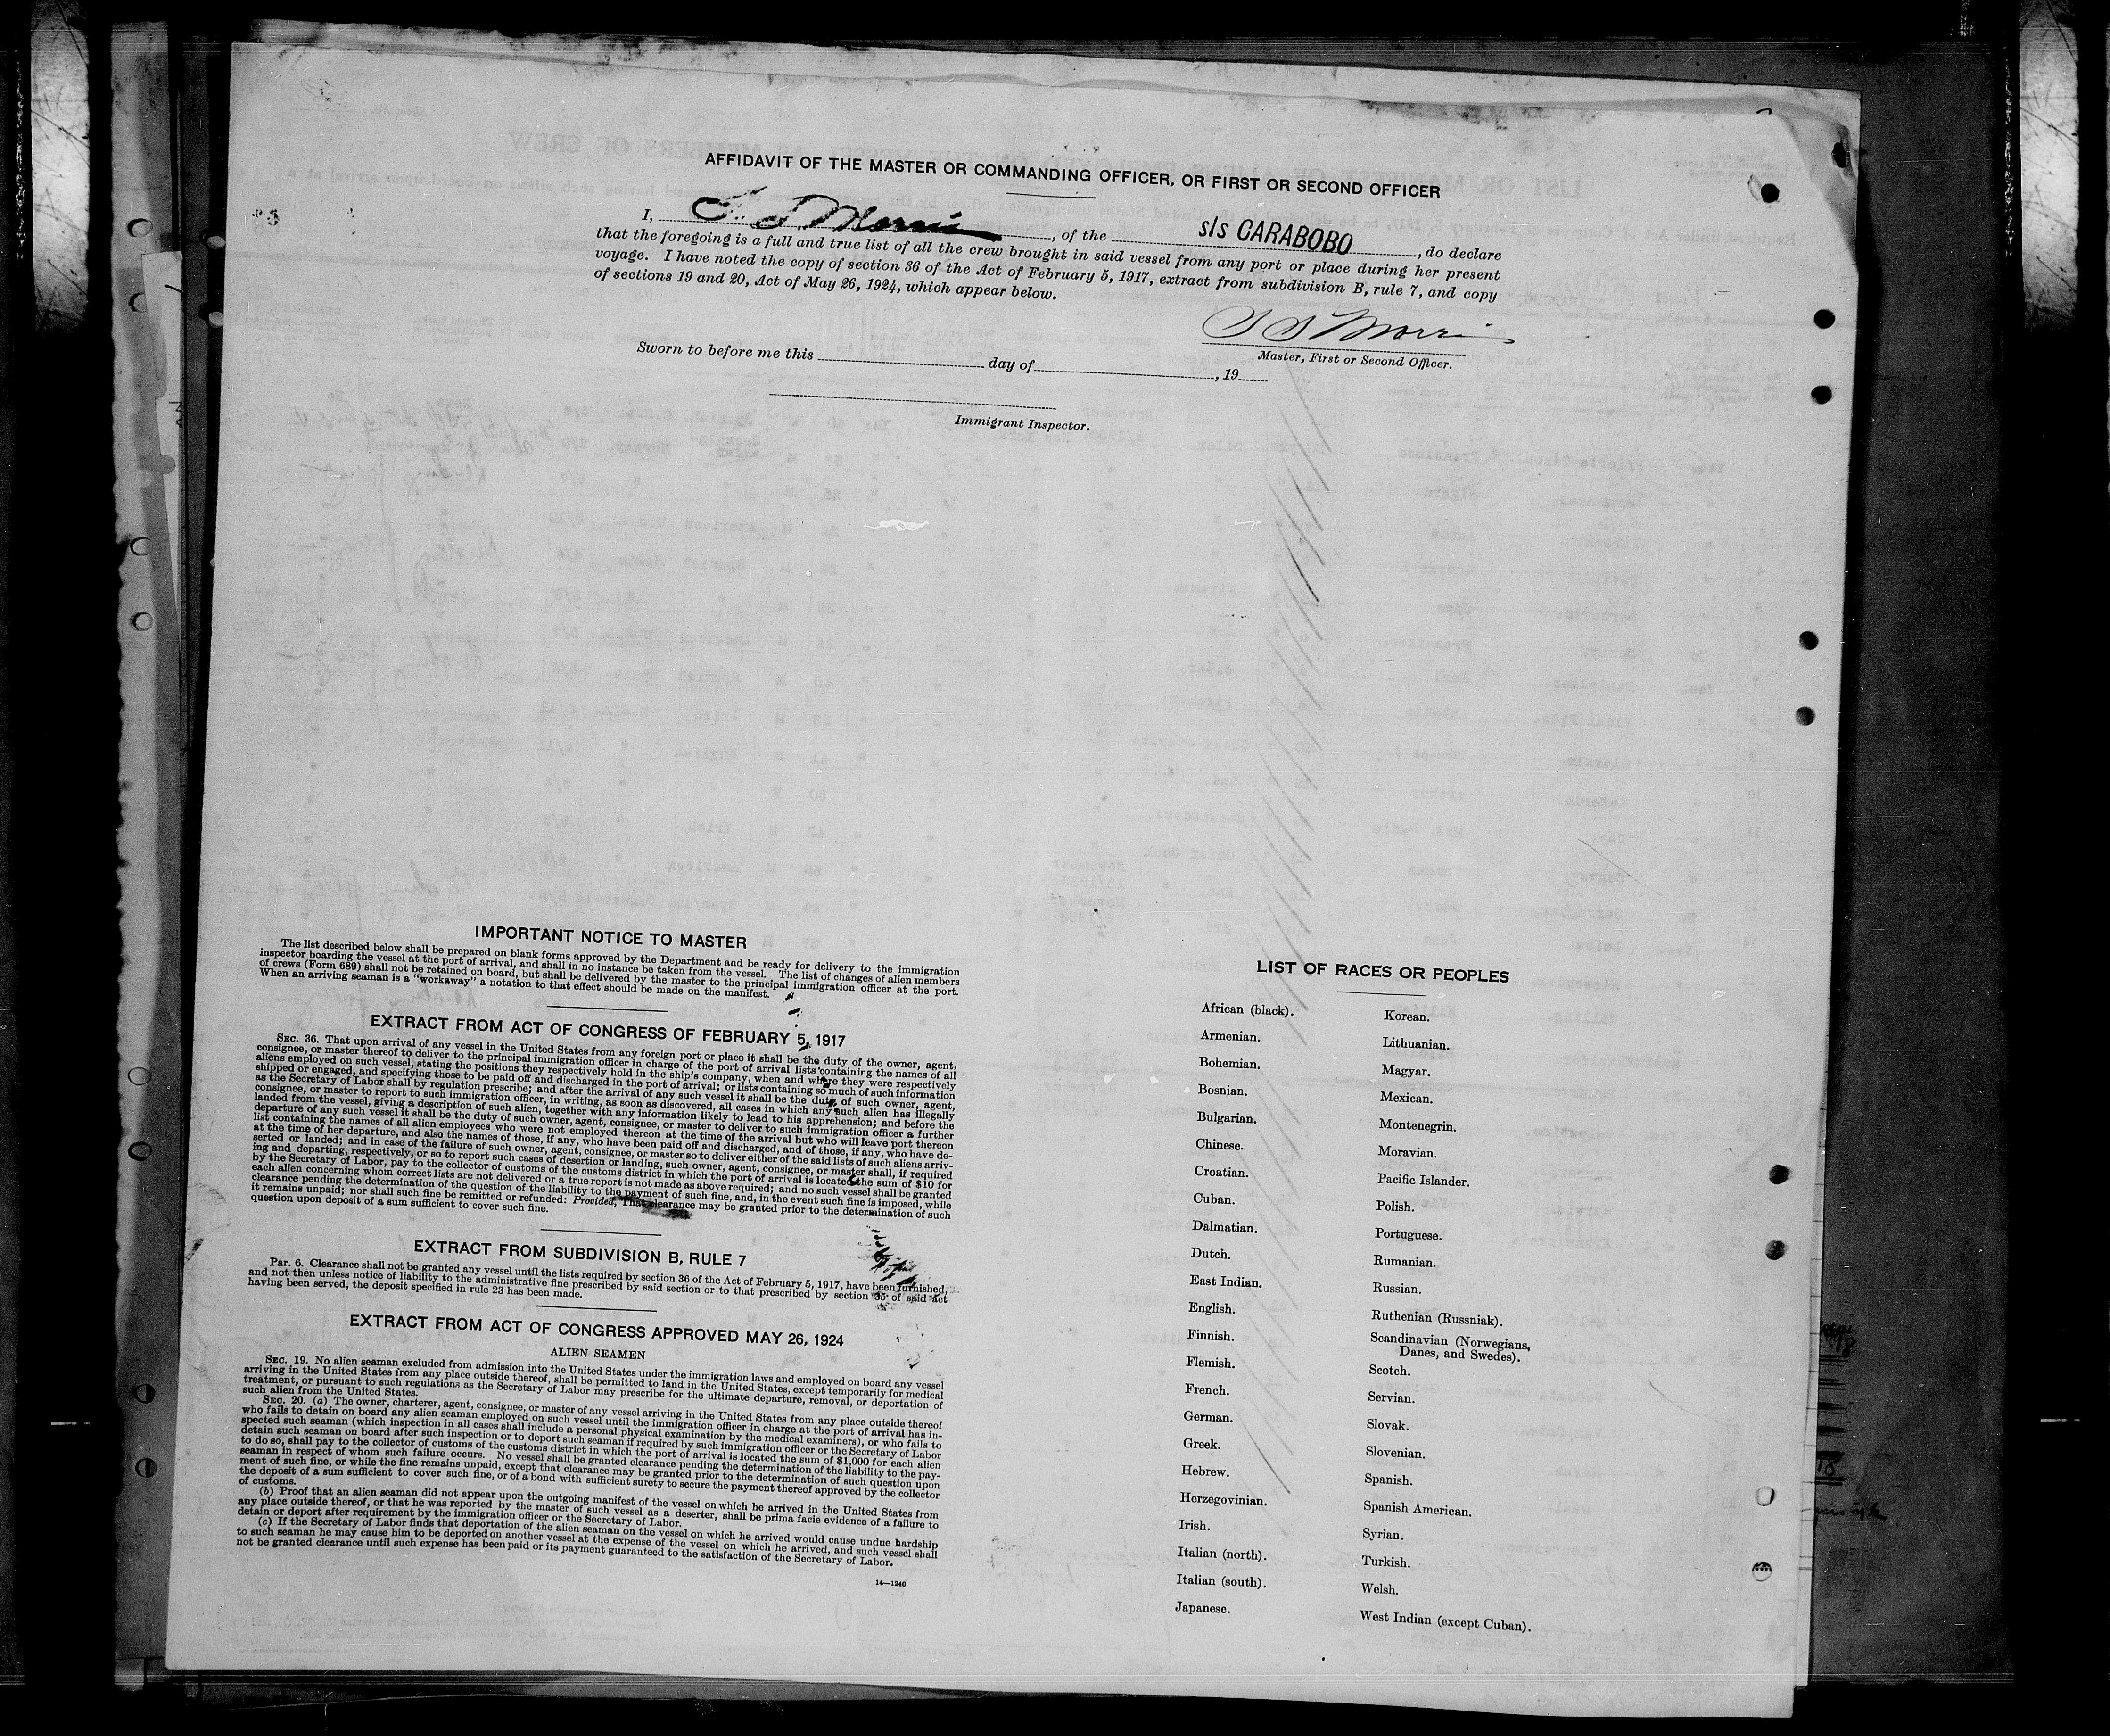 AFFIDAVIT OF THE MASTER OR COMMANDING OFFICER, OR FIRST OR SECOND OFFICER
I, Morris, of the s/s CARABOBO, do declare
that the foregoing is a full and true list of all the crew brought in said vessel from any port or place during her present
voyage. I have noted the copy of section 36 of the Act of February 5, 1917, extract from subdivision B, rule 7, and copy
of sections 19 and 20, Act of May 26, 1924, which appear below.
S S Morris
Master, First or Second Officer.
Sworn to before me this day of , 19
Immigrant Inspector.
IMPORTANT NOTICE TO MASTER
The list described below shall be prepared on blank forms approved by the Department and be ready for delivery to the immigration
inspector boarding the vessel at the port of arrival, and shall in no instance be taken from the vessel. The list of changes of alien members
of crews (Form 689) shall not be retained on board, but shall be delivered by the master to the principal immigration officer at the port.
When an arriving seaman is a "workaway" a notation to that effect should be made on the manifest.
EXTRACT FROM ACT OF CONGRESS OF FEBRUARY 5, 1917
SEC. 36. That upon arrival of any vessel in the United States from any foreign port or place it shall be the duty of the owner, agent,
consignee, or master thereof to deliver to the principal immigration officer in charge of the port of arrival lists containing the names of all
aliens employed on such vessel, stating the positions they respectively hold in the ship's company, when and where they were respectively
shipped or engaged, and specifying those to be paid off and discharged in the port of arrival; or lists containing so much of such information
as the Secretary of Labor shall by regulation prescribe; and after the arrival of any such vessel it shall be the duty of such owner, agent,
consignee, or master to report to such immigration officer, in writing, as soon as discovered, all cases in which any such alien has illegally
landed from the vessel, giving a description of such alien, together with any information likely to lead to his apprehension; and before the
departure of any such vessel it shall be the duty of such owner, agent, consignee, or master to deliver to such immigration officer a further
list containing the names of all alien employees who were not employed thereon at the time of the arrival but who will leave port thereon
at the time of her departure, and also the names of those, if any, who have been paid off and discharged, and of those, if any, who have de-
serted or landed; and in case of the failure of such owner, agent, consignee, or master so to deliver either of the said lists of such aliens arriv-
ing and departing, respectively, or so to report such cases of desertion or landing, such owner, agent, consignee, or master shall, if required
by the Secretary of Labor, pay to the collector of customs of the customs district in which the port of arrival is located the sum of $10 for
each alien concerning whom correct lists are not delivered or a true report is not made as above required; and no such vessel shall be granted
clearance pending the determination of the question of the liability to the payment of such fine, and, in the event such fine is imposed, while
it remains unpaid; nor shall such fine be remitted or refunded: Provided, That clearance may be granted prior to the determination of such
question upon deposit of a sum sufficient to cover such fine.
EXTRACT FROM SUBDIVISION B, RULE 7
Par. 6. Clearance shall not be granted any vessel until the lists required by section 36 of the Act of February 5, 1917, have been furnished,
and not then unless notice of liability to the administrative fine prescribed by said section or to that prescribed by section 35 of said Act
having been served, the deposit specified in rule 23 has been made.
EXTRACT FROM ACT OF CONGRESS APPROVED MAY 26, 1924
ALIEN SEAMEN
SEC. 19. No alien seaman excluded from admission into the United States under the immigration laws and employed on board any vessel
arriving in the United States from any place outside thereof, shall be permitted to land in the United States, except temporarily for medical
treatment, or pursuant to such regulations as the Secretary of Labor may prescribe for the ultimate departure, removal, or deportation of
such alien from the United States.
SEC. 20. (a) The owner, charterer, agent, consignee, or master of any vessel arriving in the United States from any place outside thereof
who fails to detain on board any alien seaman employed on such vessel until the immigration officer in charge at the port of arrival has in-
spected such seaman (which inspection in all cases shall include a personal physical examination by the medical examiners), or who fails to
detain such seaman on board after such inspection or to deport such seaman if required by such immigration officer or the Secretary of Labor
to do so, shall pay to the collector of customs of the customs district in which the port of arrival is located the sum of $1,000 for each alien
seaman in respect of whom such failure occurs. No vessel shall be granted clearance pending the determination of the liability to the pay-
ment of such fine, or while the fine remains unpaid, except that clearance may be granted prior to the determination of such question upon
the deposit of a sum sufficient to cover such fine, or of a bond with sufficient surety to secure the payment thereof approved by the collector
of customs.
(b) Proof that an alien seaman did not appear upon the outgoing manifest of the vessel on which he arrived in the United States from
any place outside thereof, or that he was reported by the master of such vessel as a deserter, shall be prima facie evidence of a failure to
detain or deport after requirement by the immigration officer or the Secretary of Labor.
(c) If the Secretary of Labor finds that deportation of the alien seaman on the vessel on which he arrived would cause undue hardship
to such seaman he may cause him to be deported on another vessel at the expense of the vessel on which he arrived, and such vessel shall
not be granted clearance until such expense has been paid or its payment guaranteed to the satisfaction of the Secretary of Labor.
14—1240
LIST OF RACES OR PEOPLES
African (black).
Armenian.
Bohemian.
Bosnian.
Bulgarian.
Chinese.
Croatian.
Cuban.
Dalmatian.
Dutch.
East Indian.
English.
Finnish.
Flemish.
French.
German.
Greek.
Hebrew.
Herzegovinian.
Irish.
Italian (north).
Italian (south).
Japanese.
Korean.
Lithuanian.
Magyar.
Mexican.
Montenegrin.
Moravian.
Pacific Islander.
Polish.
Portuguese.
Rumanian.
Russian.
Ruthenian (Russniak).
Scandinavian (Norwegians,
Danes, and Swedes).
Scotch.
Servian.
Slovak.
Slovenian.
Spanish.
Spanish American.
Syrian.
Turkish.
Welsh.
West Indian (except Cuban).